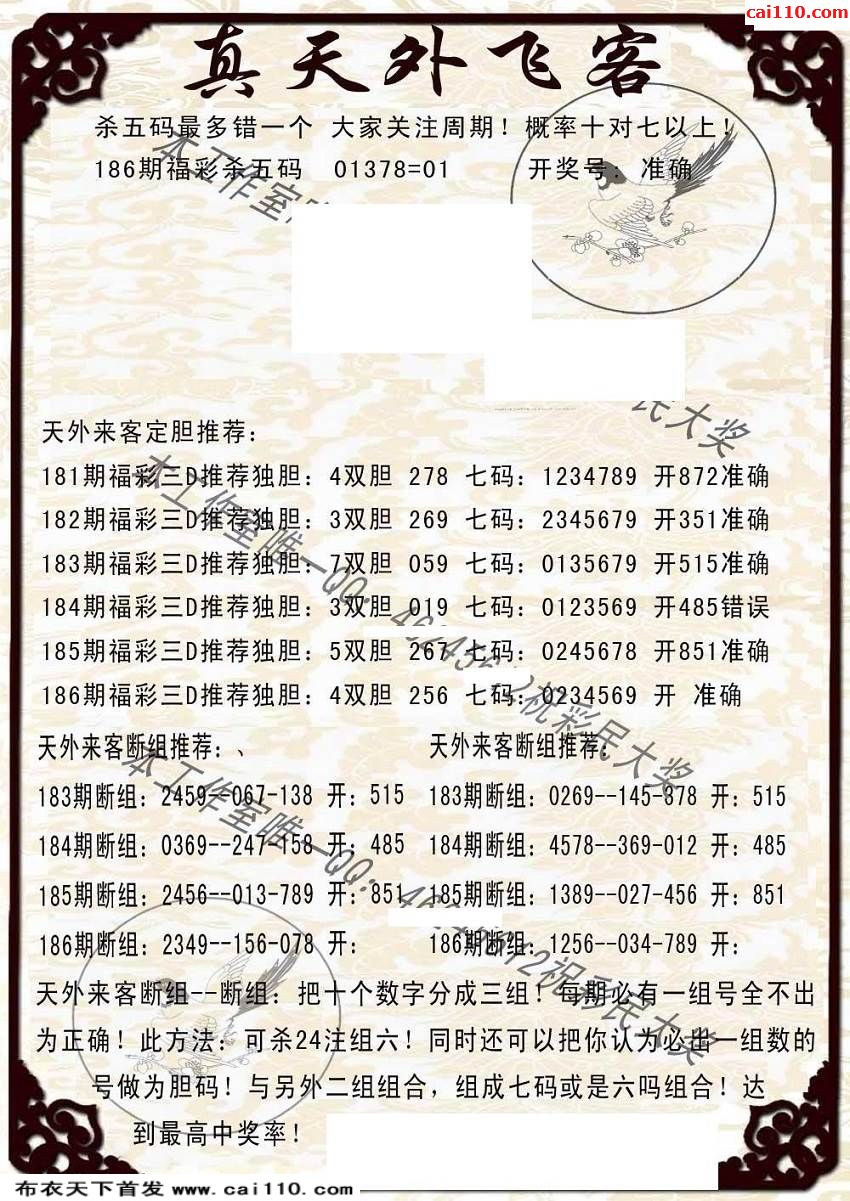 cai110.com
真天外飞客
杀五码最多错一个 大家关注周期！概率十对七以上！
186期福彩杀五码 01378=01 开奖号：准确
天外来客定胆推荐：
181期福彩三D推荐独胆：4双胆 278 七码：1234789 开872准确
182期福彩三D推荐独胆：3双胆 269 七码：2345679 开351准确
183期福彩三D推荐独胆：7双胆 059 七码：0135679 开515准确
184期福彩三D推荐独胆：3双胆 019 七码：0123569 开485错误
185期福彩三D推荐独胆：5双胆 267 七码：0245678 开851准确
186期福彩三D推荐独胆：4双胆 256 七码：0234569 开 准确
天外来客断组推荐：、 天外来客断组推荐：
183期断组：2459--067-138 开：515 183期断组：0269--145-378 开：515
184期断组：0369--247-158 开：485 184期断组：4578--369-012 开：485
185期断组：2456--013-789 开：851 185期断组：1389--027-456 开：851
186期断组：2349--156-078 开： 186期断组：1256--034-789 开：
天外来客断组--断组：把十个数字分成三组！每期必有一组号全不出
为正确！此方法：可杀24注组六！同时还可以把你认为必出一组数的
号做为胆码！与另外二组组合，组成七码或是六吗组合！达
到最高中奖率！
本工作室唯
民大奖
本工作室唯一QQ：
祝彩民大奖
本工作室唯一QQ：
祝彩民大奖
布衣天下首发 www.cai110.com